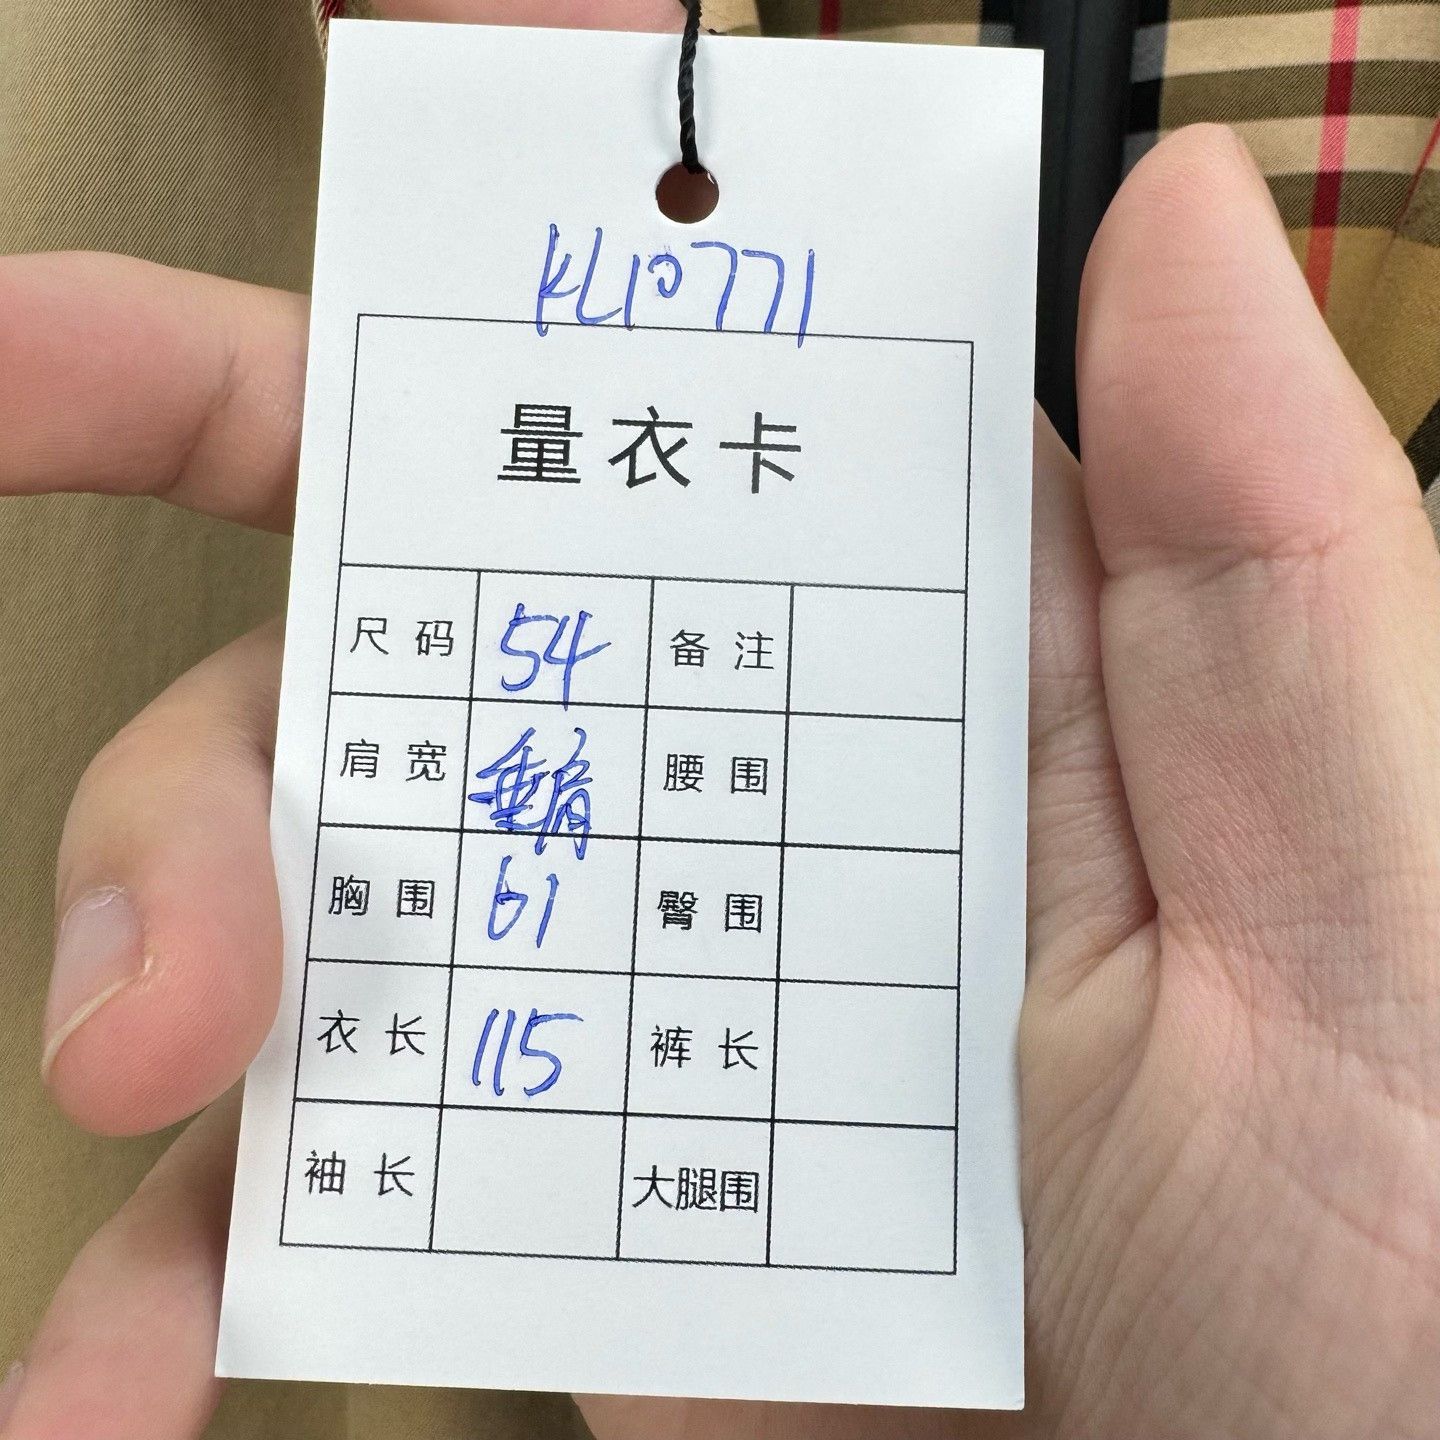 KL10771
量衣卡
尺码 54 备注
肩宽 垂肩 腰围
胸围 61 臀围
衣长 115 裤长
袖长 大腿围